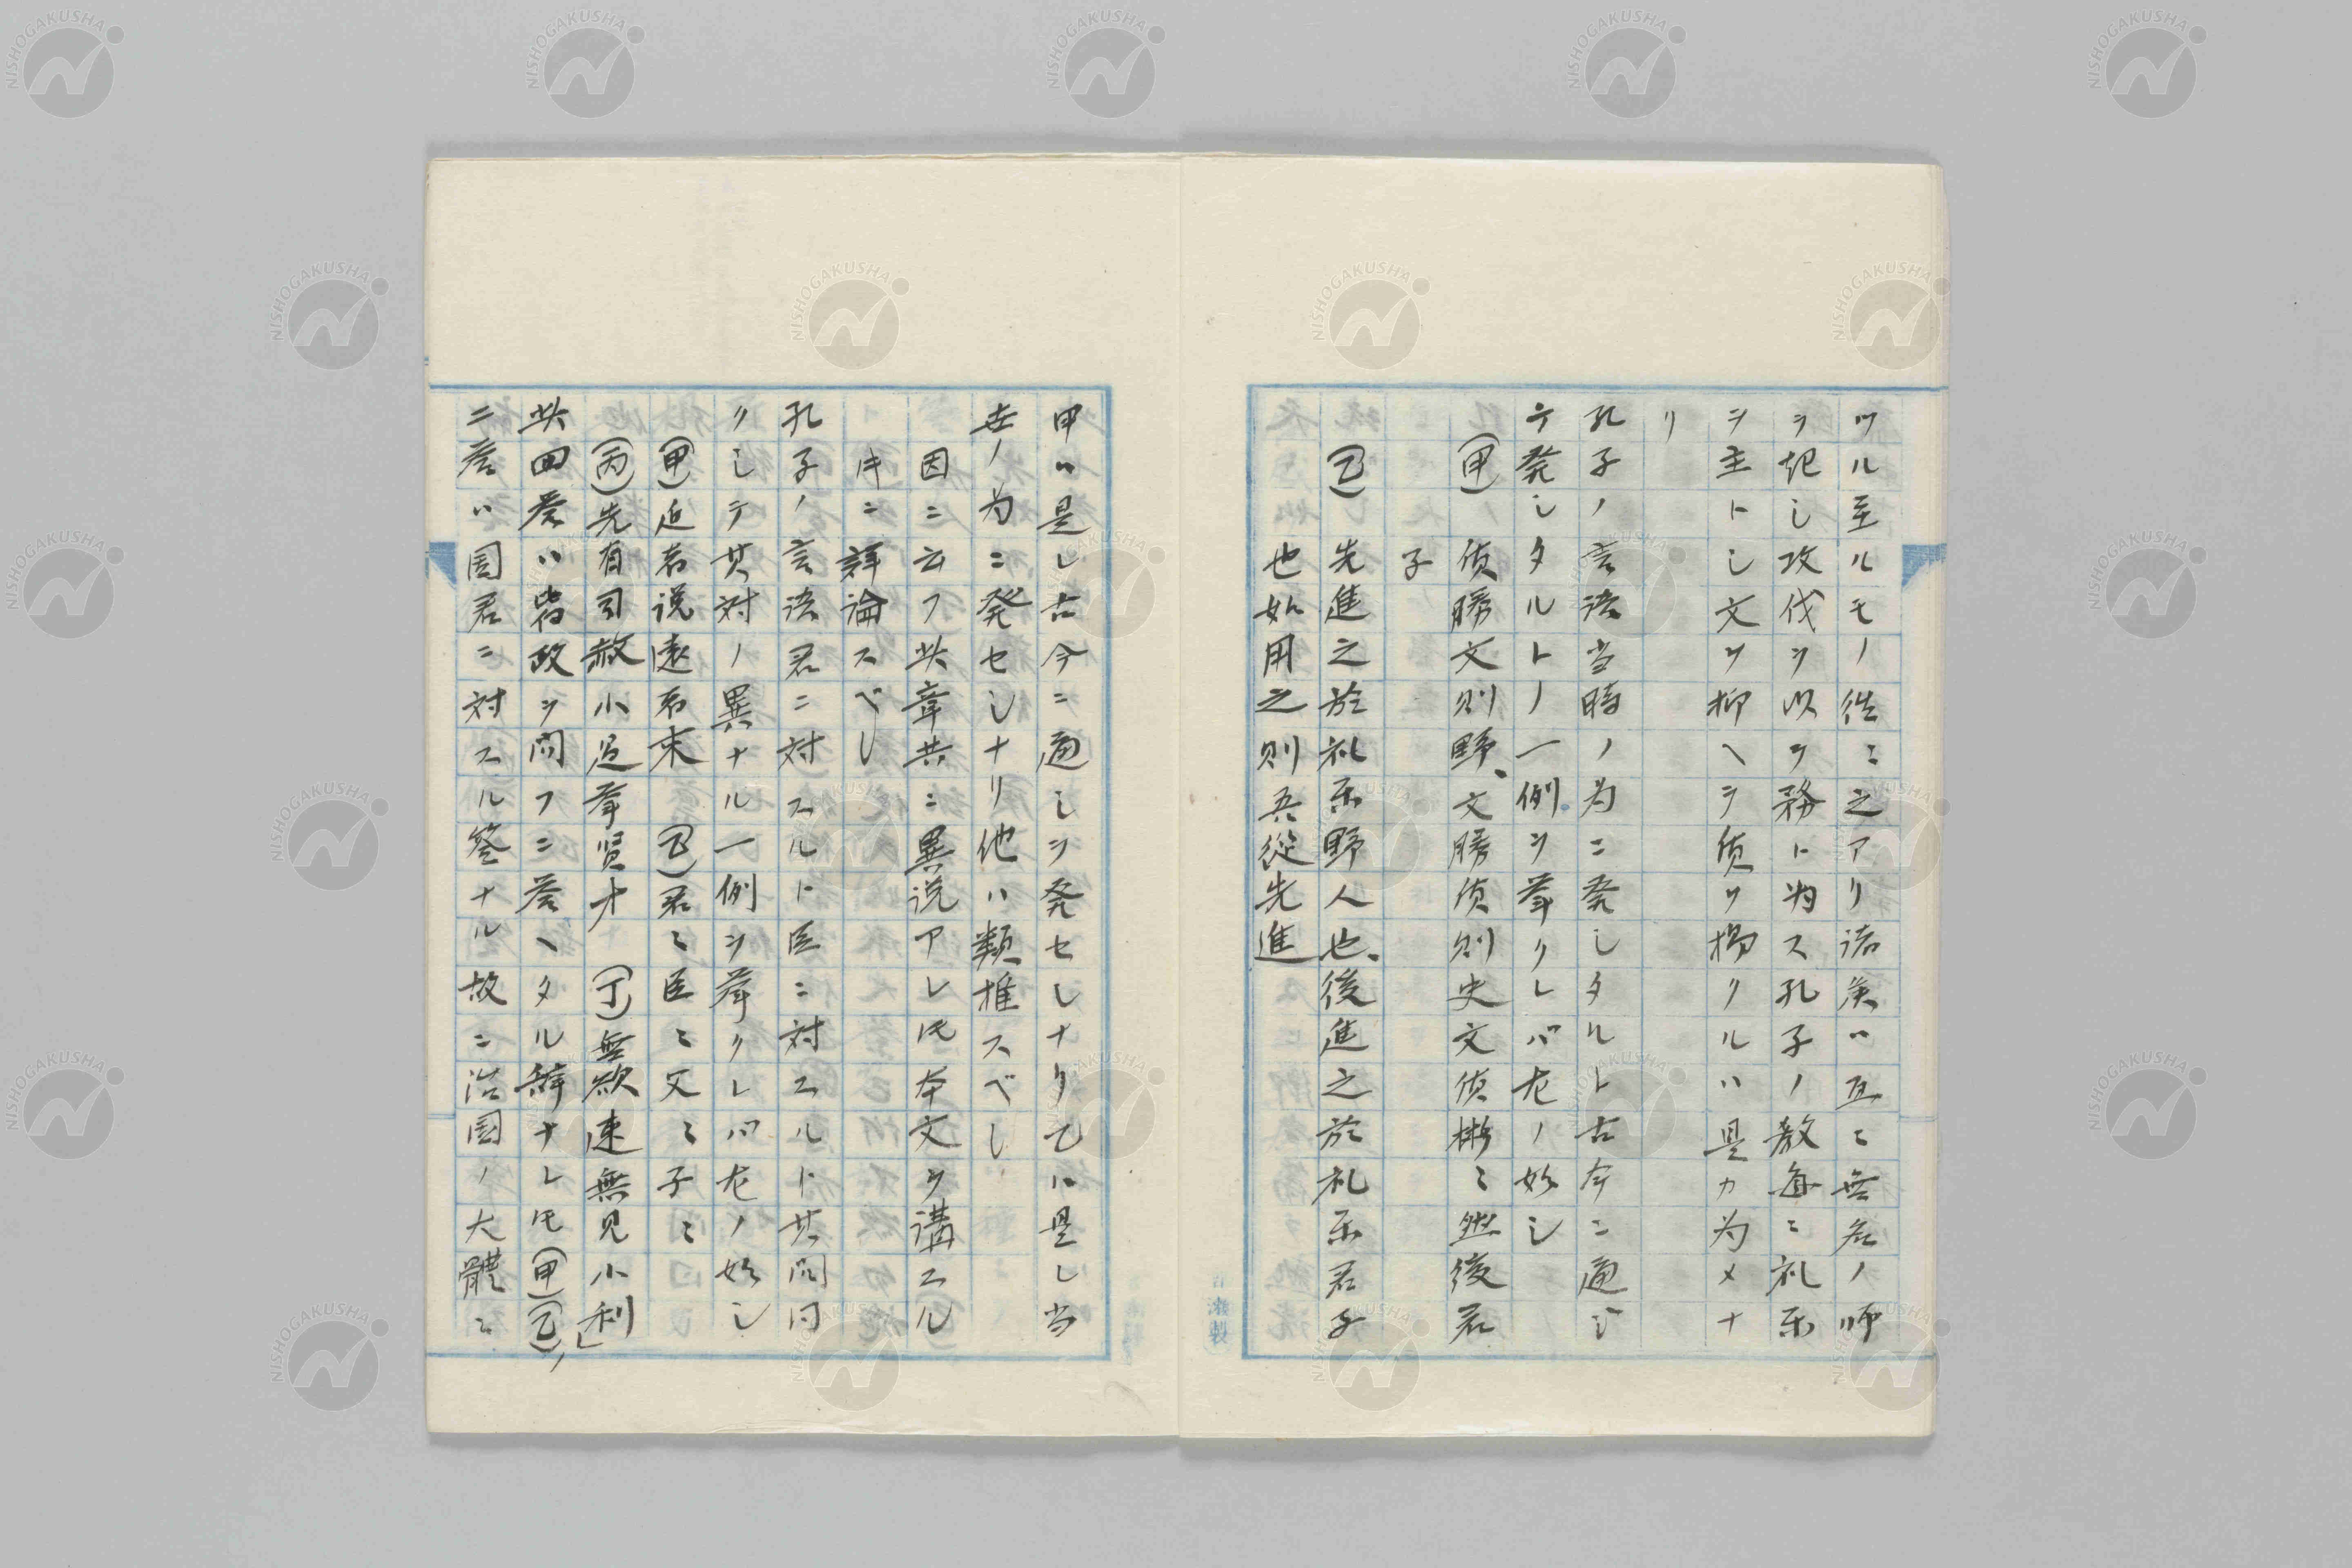 ツル至ルモノ徃〻之アリ諸矦ハ互〻無名ノ師
ヲ起シ攻伐ヲ以ヲ務ト為ス孔子ノ教毎〻礼楽
ヲ主トシ文ヲ抑ヘテ質ヲ揚クルハ是カ為メナ
リ
孔子ノ言語当時ノ為ニ発シタルト古今ニ通ジ
テ発シタルトノ一例ヲ挙クレバ左ノ如シ
(甲)質勝文則野、文勝質則史文質彬〻然後君
子
(乙)先進之於礼楽野人也、後進之於礼楽君子
也如用之則吾從先進
甲ハ是レ古今ニ通シヲ発セシナリ乙ハ是レ当
世ノ為ニ発セシナリ他ハ類推スベシ
因ニ云フ此章共ニ異説アレ𪜈本文ヲ講スル
𬼀ニ詳論スベシ
孔子ノ言語君ニ対スルト臣ニ対スルト其問同
クシテ其対ノ異ナル一例ヲ挙クレバ左ノ如シ
(甲)近者説遠者来 (乙)君〻臣〻父〻子〻
(丙)先有司赦小過挙賢才 (丁)無欲速無見小利
此四答ハ皆政ヲ問フニ答ヘタル辞ナレ𪜈(甲)(乙)ノ
二答ハ国君ニ対スル答ナル故ニ治国ノ大體ニ